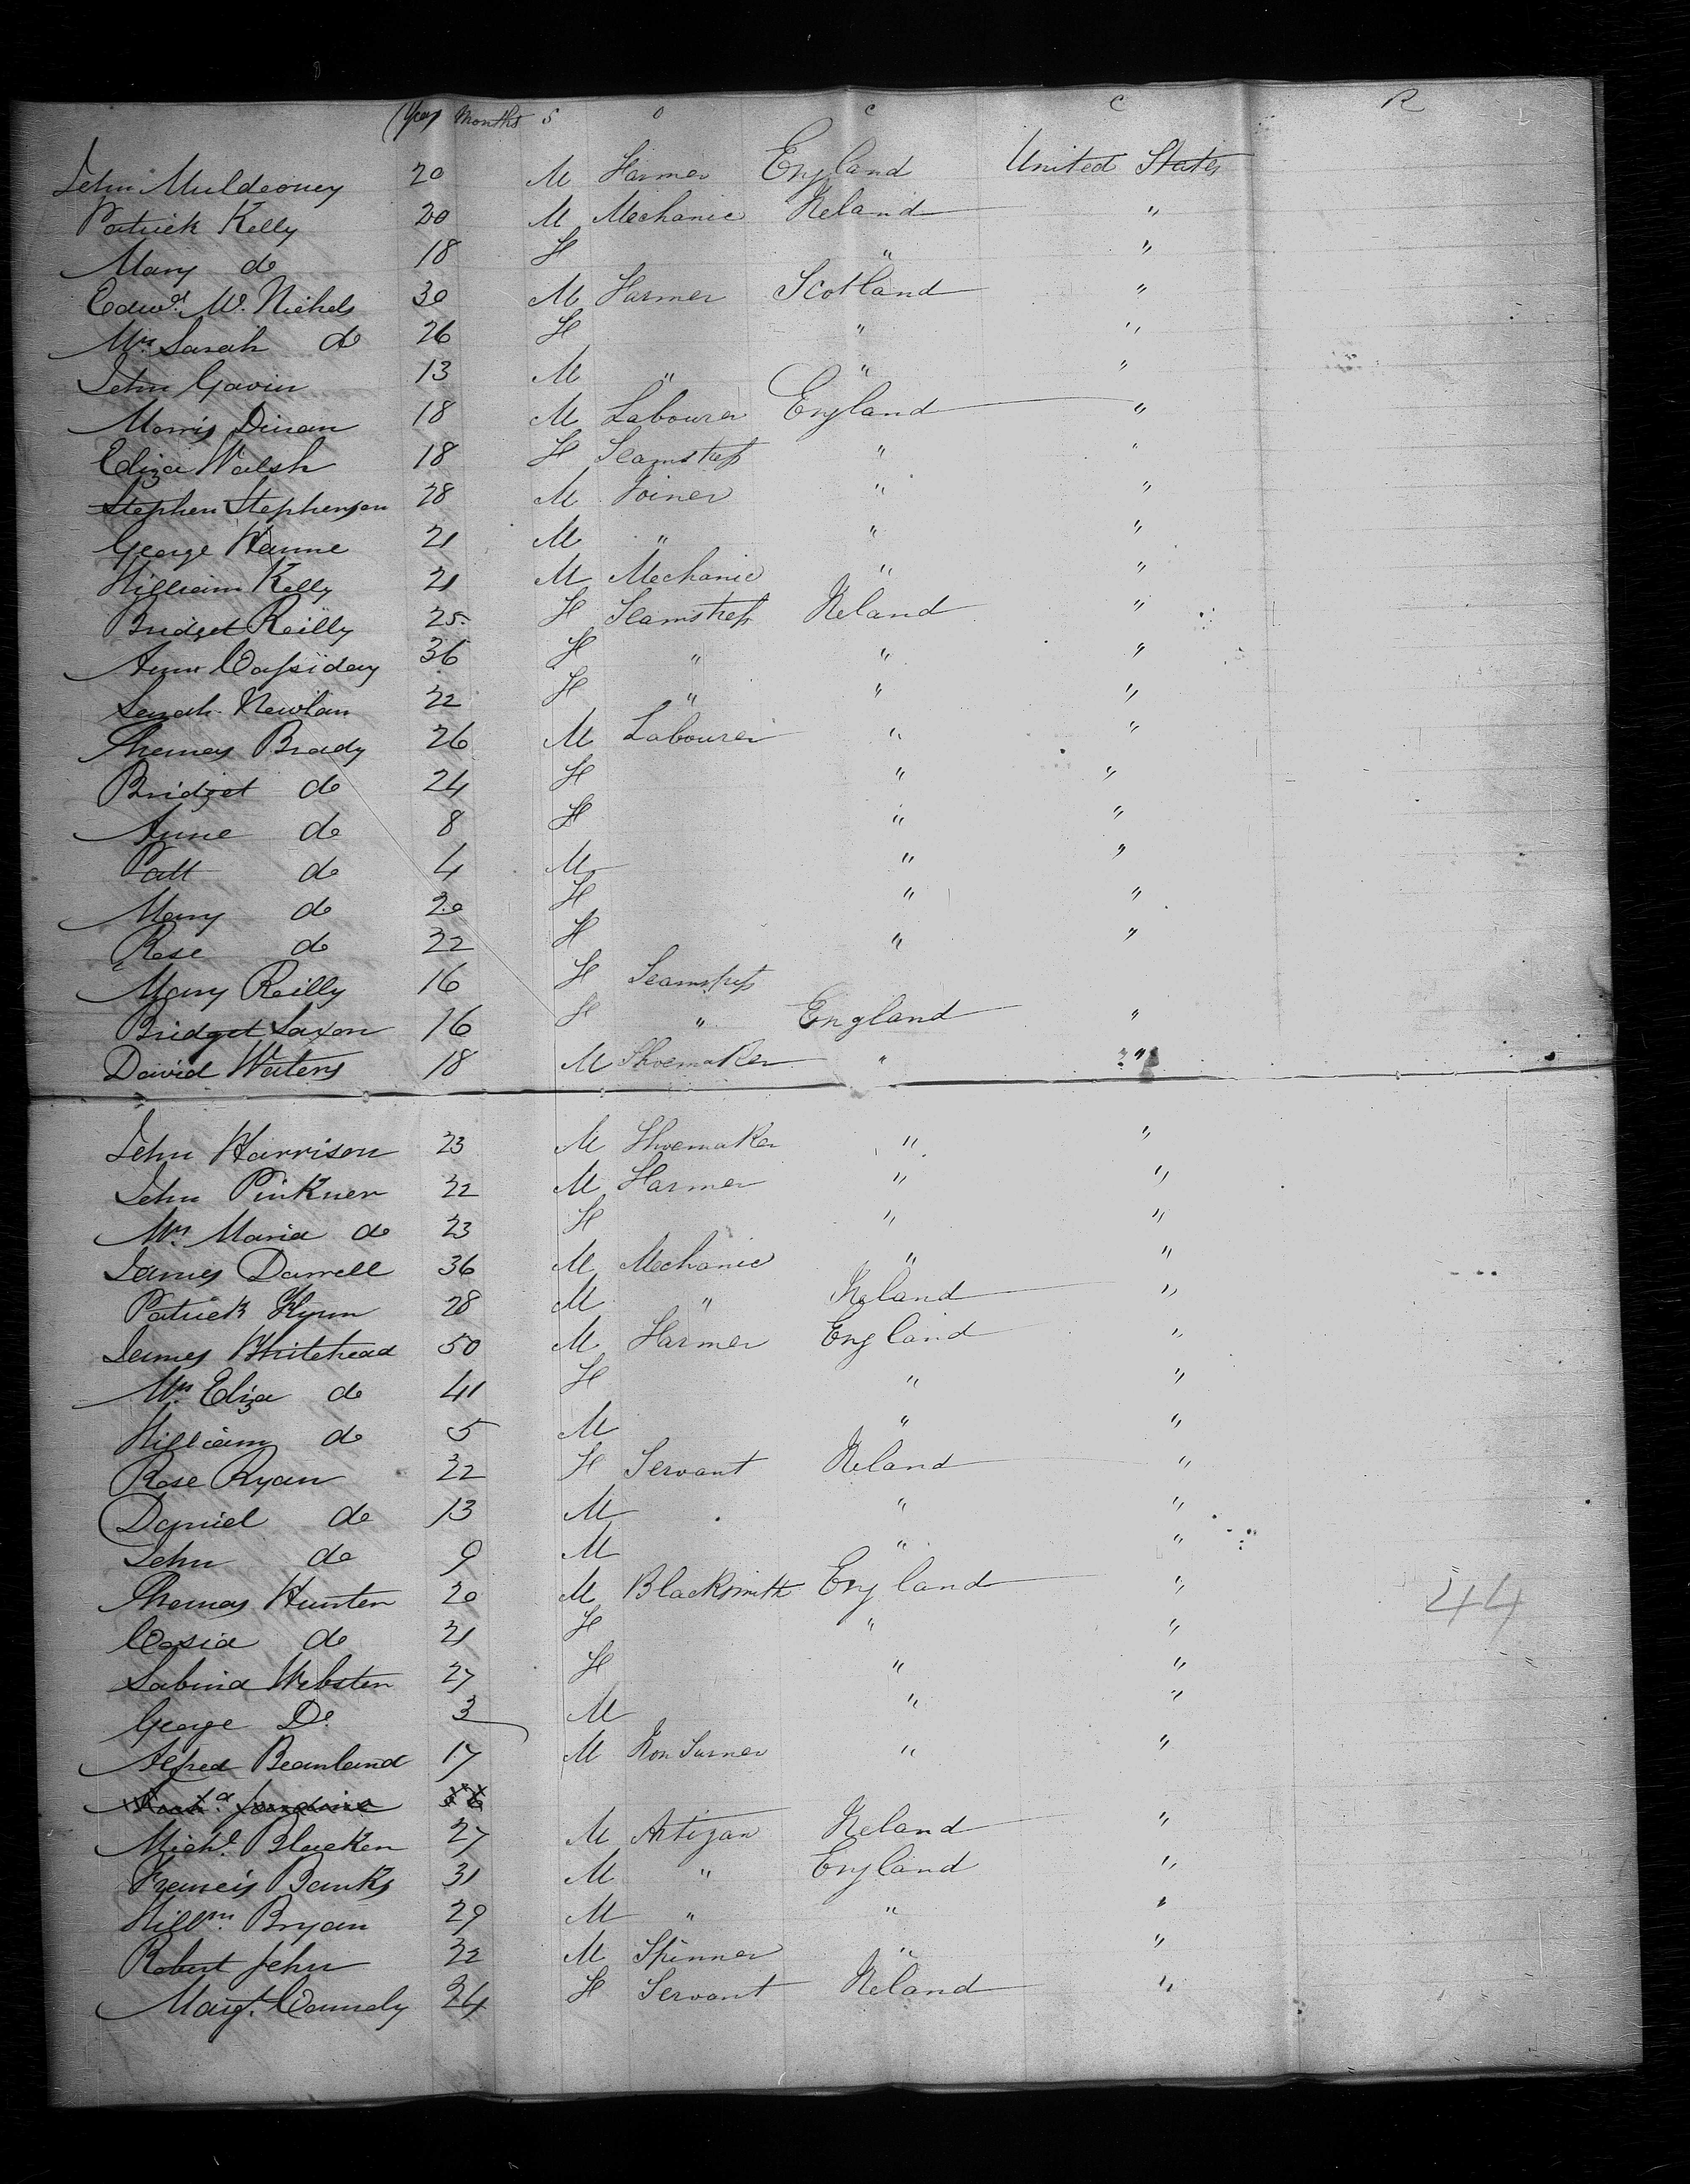 Years Months S O C C R
John Muldooney 20 M Farmer England United States
Patrick Kelly 20 M Mechanic Ireland "
Mary do 18 F " "
Edwd. Mc. Nichols 30 M Farmer Scotland "
Mrs. Sarah do 26 F " "
John Gavin 13 M " " "
Morris Dinan 18 M Labourer England "
Eliza Walsh 18 F Seamstress " "
Stephen Stephenson 28 M Joiner " "
George Wanne 21 M " " "
William Kelly 21 M Mechanic " "
Bridget Reilly 25 F Seamstress Ireland "
Ann Cassiday 36 F " " "
Sarah Newlan 22 F " " "
Thomas Brady 26 M Labourer " "
Bridget do 24 F " "
Anne do 8 F " "
Patt do 4 M " "
Mary do 20 F " "
Rose do 22 F " "
Mary Reilly 16 F Seamstress
Bridget Saxon 16 F " England "
David Waters 18 M Shoemaker " "
John Harrison 23 M Shoemaker " "
John Pinkner 22 M Farmer " "
Mrs. Maria do 23 F " "
James Darrell 36 M Mechanic " "
Patrick Flynn 28 M " Ireland "
James Whitehead 50 M Farmer England "
Mrs. Eliza do 41 F " "
William do 5 M " "
Rose Ryan 22 F Servant Ireland "
Daniel do 13 M " "
John do 9 M " "
Thomas Hunter 20 M Blacksmith England " 44
Casia do 21 F " "
Sabina Webster 27 F " "
George Do. 3 M " "
Alfred Beanland 17 M Iron Turner " "
Michl. Blacken 27 M Artizan Ireland "
Francis Banks 31 M " England "
Willm. Bryan 29 M " " "
Robert John 22 M Spinner " "
Margt. Connely 24 F Servant Ireland "